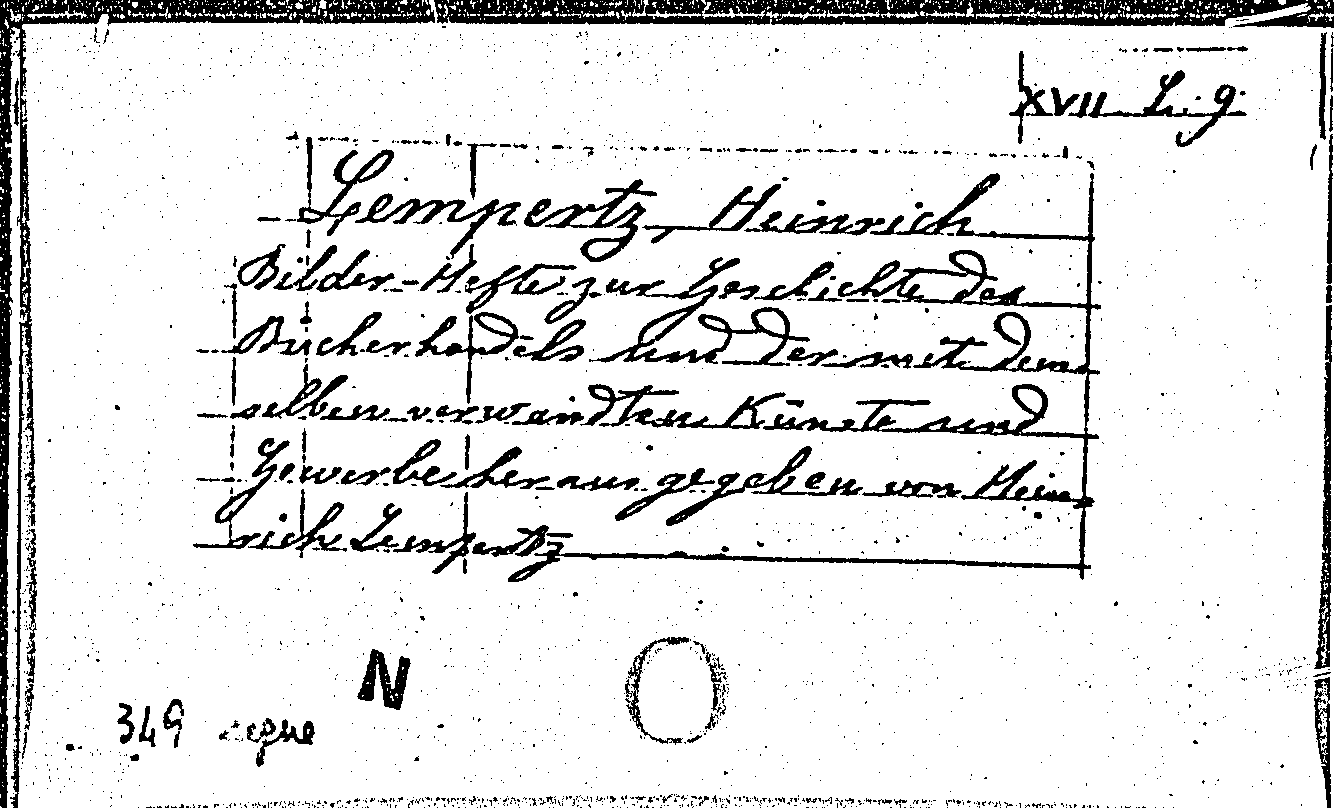 XVII L. 9.
Lempertz, Heinrich
Bilder-Hefte zur Geschichte des
Bücherhandels und der mit dem-
selben verwandten Künste und
Gewerbe herausgegeben von Hein-
rich Lempertz
N
349 segue